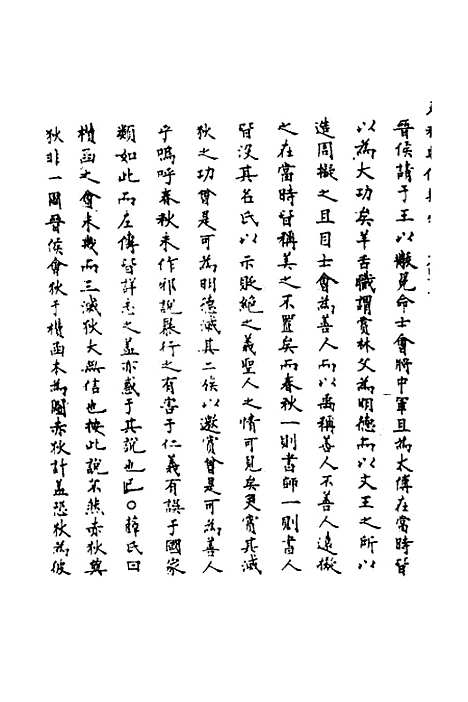 晉侯請于王以黻冕命士會將中軍且為太傅在當時皆
以為大功矣羊舌職謂賞林父為明德而以文王之所以
造周擬之且目士會為善人而以禹稱善人不善人遠擬
之在當時皆稱美之不置矣而春秋一則書師一則書人
皆没其名氏以示貶絶之義聖人之情可見矣更賞其滅
狄之功曾是可為明德滅其二侯以邀賞曾是可為善人
乎嗚呼春秋未作邪説暴行之有害于仁義有誤于國家
類如此而左傳皆詳志之盖亦惑于其說也已○薛氏曰
欑函之會未幾而三滅狄大無信也按此說不然赤狄與
狄非一國晉侯會狄于欑函本為圖赤狄計盖恐狄為彼